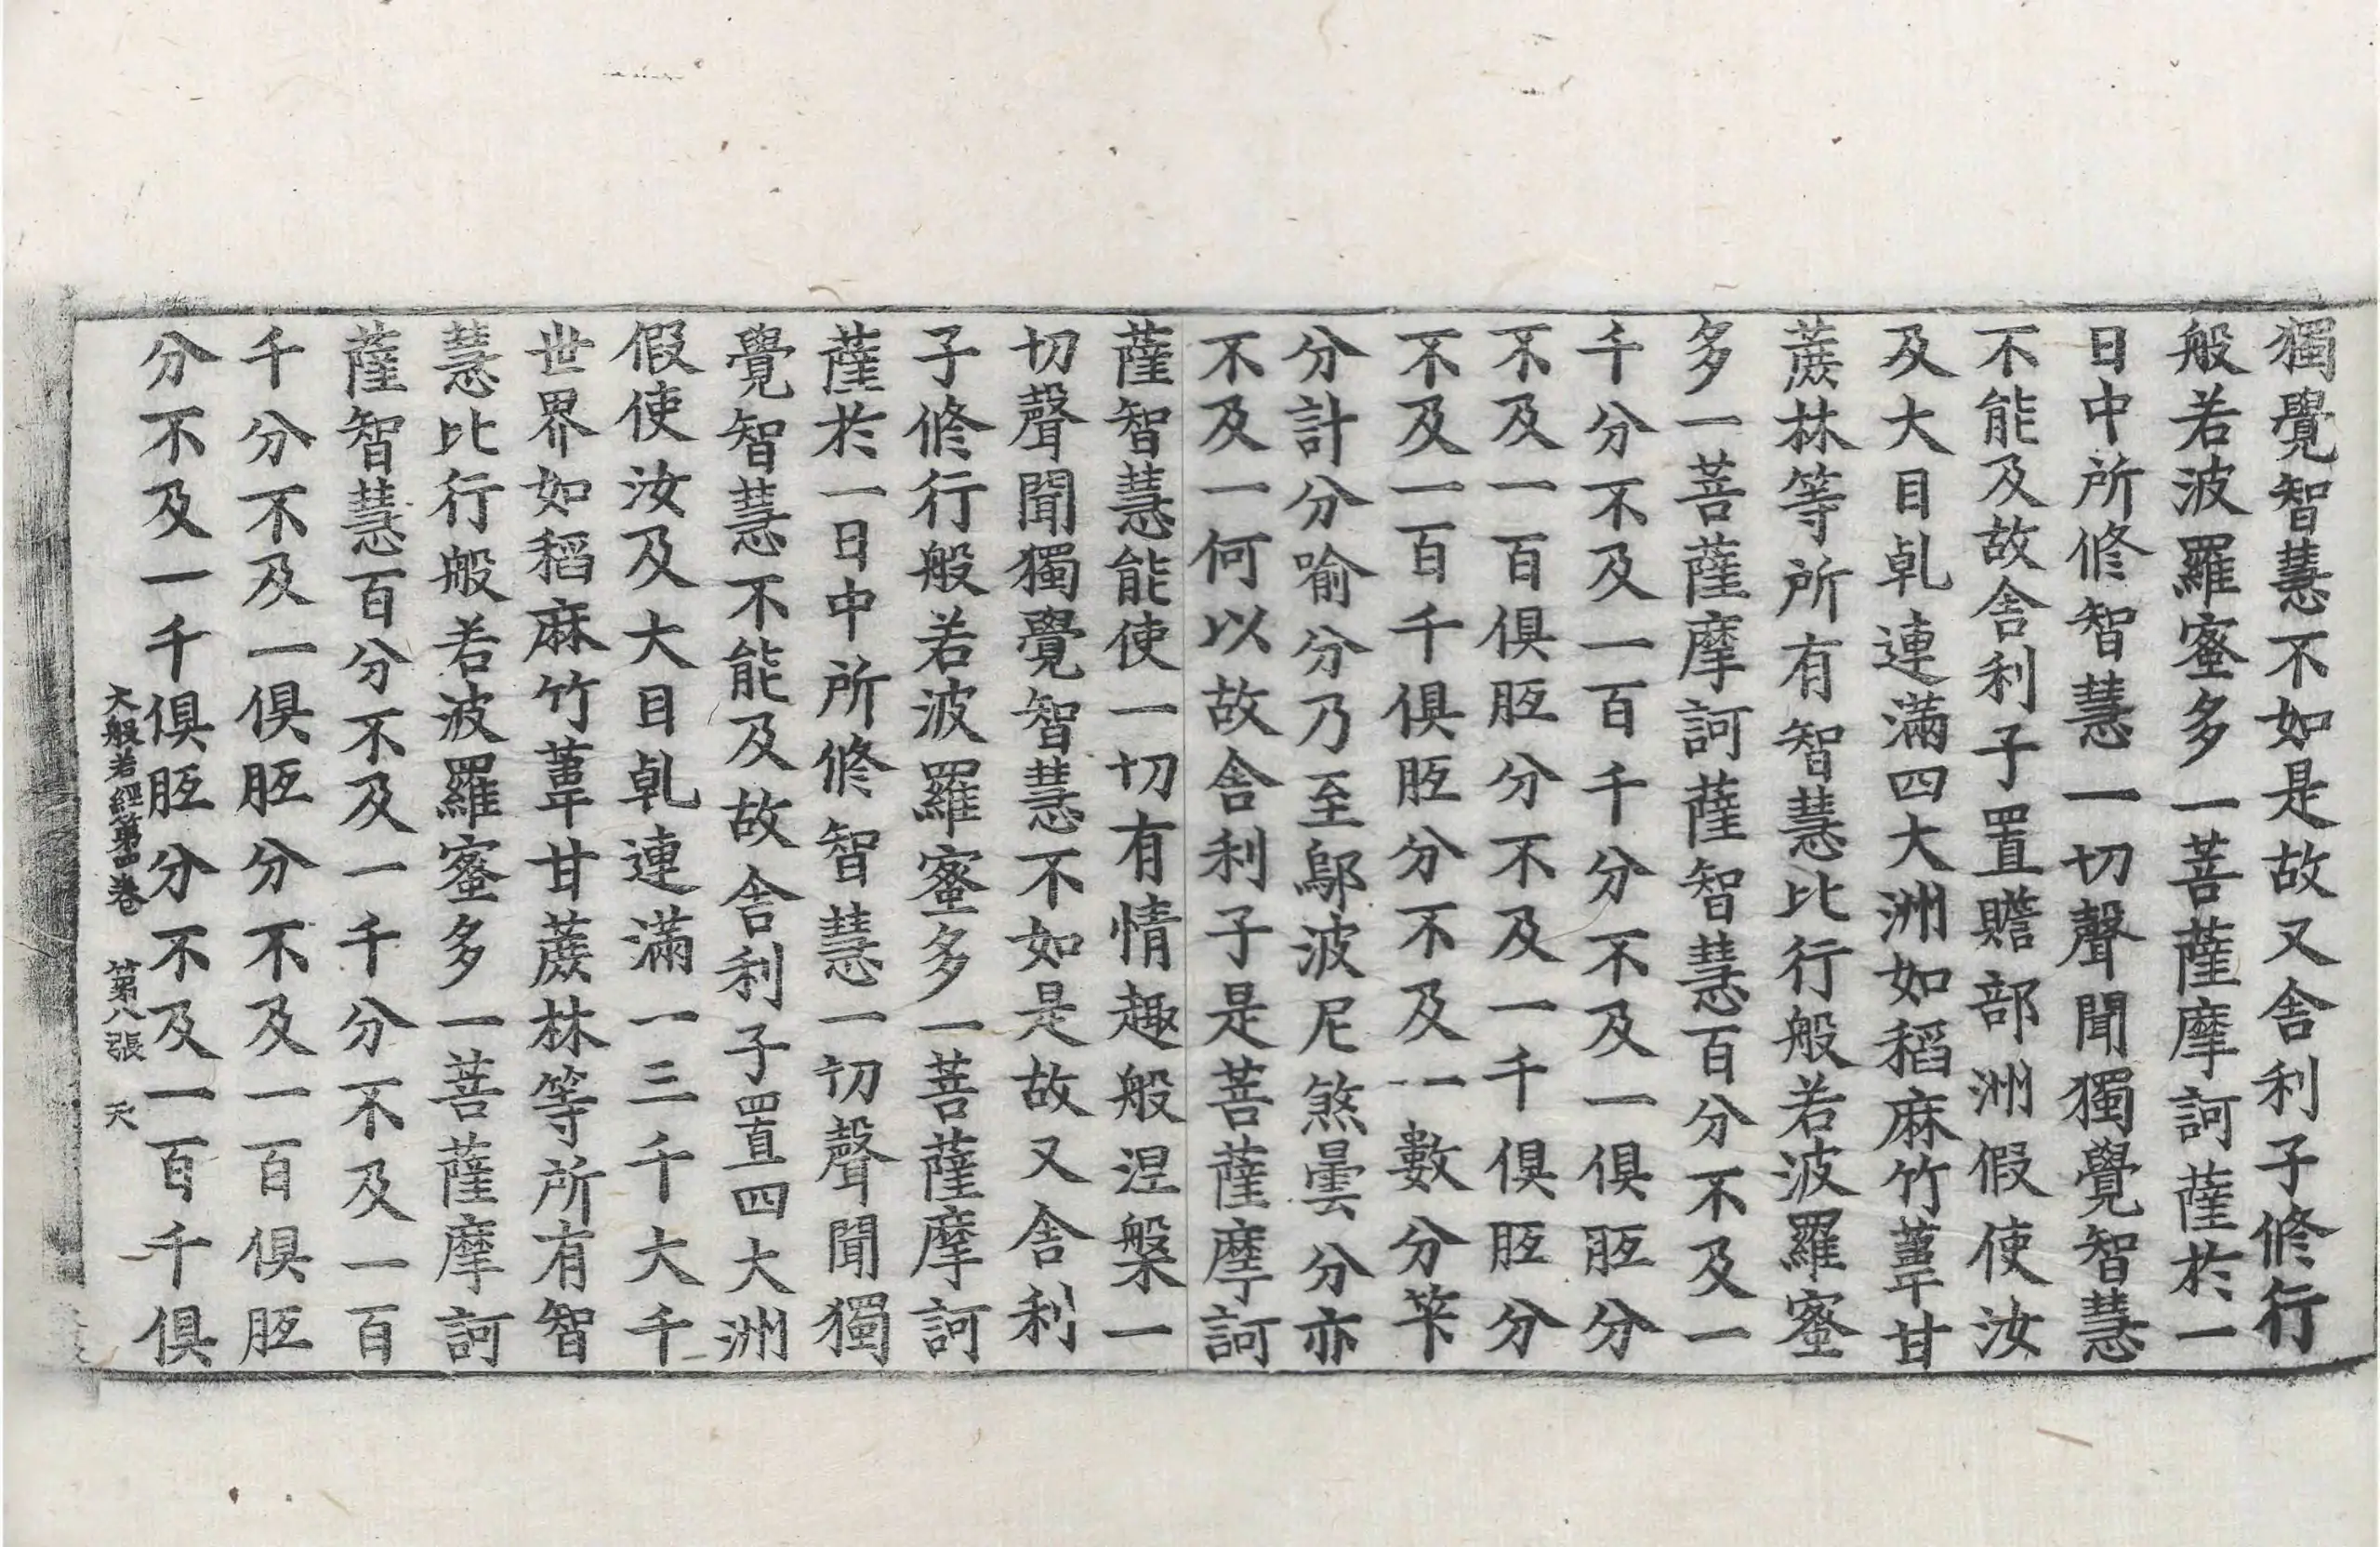 獨覺智慧不如是故又舍利子修行
般若波羅蜜多一菩薩摩訶薩於一
日中所修智慧一切聲聞獨覺智慧
不能及故舍利子置贍部洲假使汝
及大目乹連滿四大洲如稻麻竹葦甘
蔗林等所有智慧比行般若波羅蜜
多一菩薩摩訶薩智慧百分不及一
千分不及一百千分不及一俱胝分
不及一百俱胝分不及一千俱胝分
不及一百千俱胝分不及一數分筭
分計分喻分乃至鄔波尼煞曇分亦
不及一何以故舍利子是菩薩摩訶
薩智慧能使一切有情趣般涅槃一
切聲聞獨覺智慧不如是故又舍利
子修行般若波羅蜜多一菩薩摩訶
薩於一日中所修智慧一切聲聞獨
覺智慧不能及故舍利子置四大洲
假使汝及大目乹連滿一三千大千
世界如稻麻竹葦甘蔗林等所有智
慧比行般若波羅蜜多一菩薩摩訶
薩智慧百分不及一千分不及一百
千分不及一俱胝分不及一百俱胝
分不及一千俱胝分不及一百千俱
大般若經第四卷 第八張 天